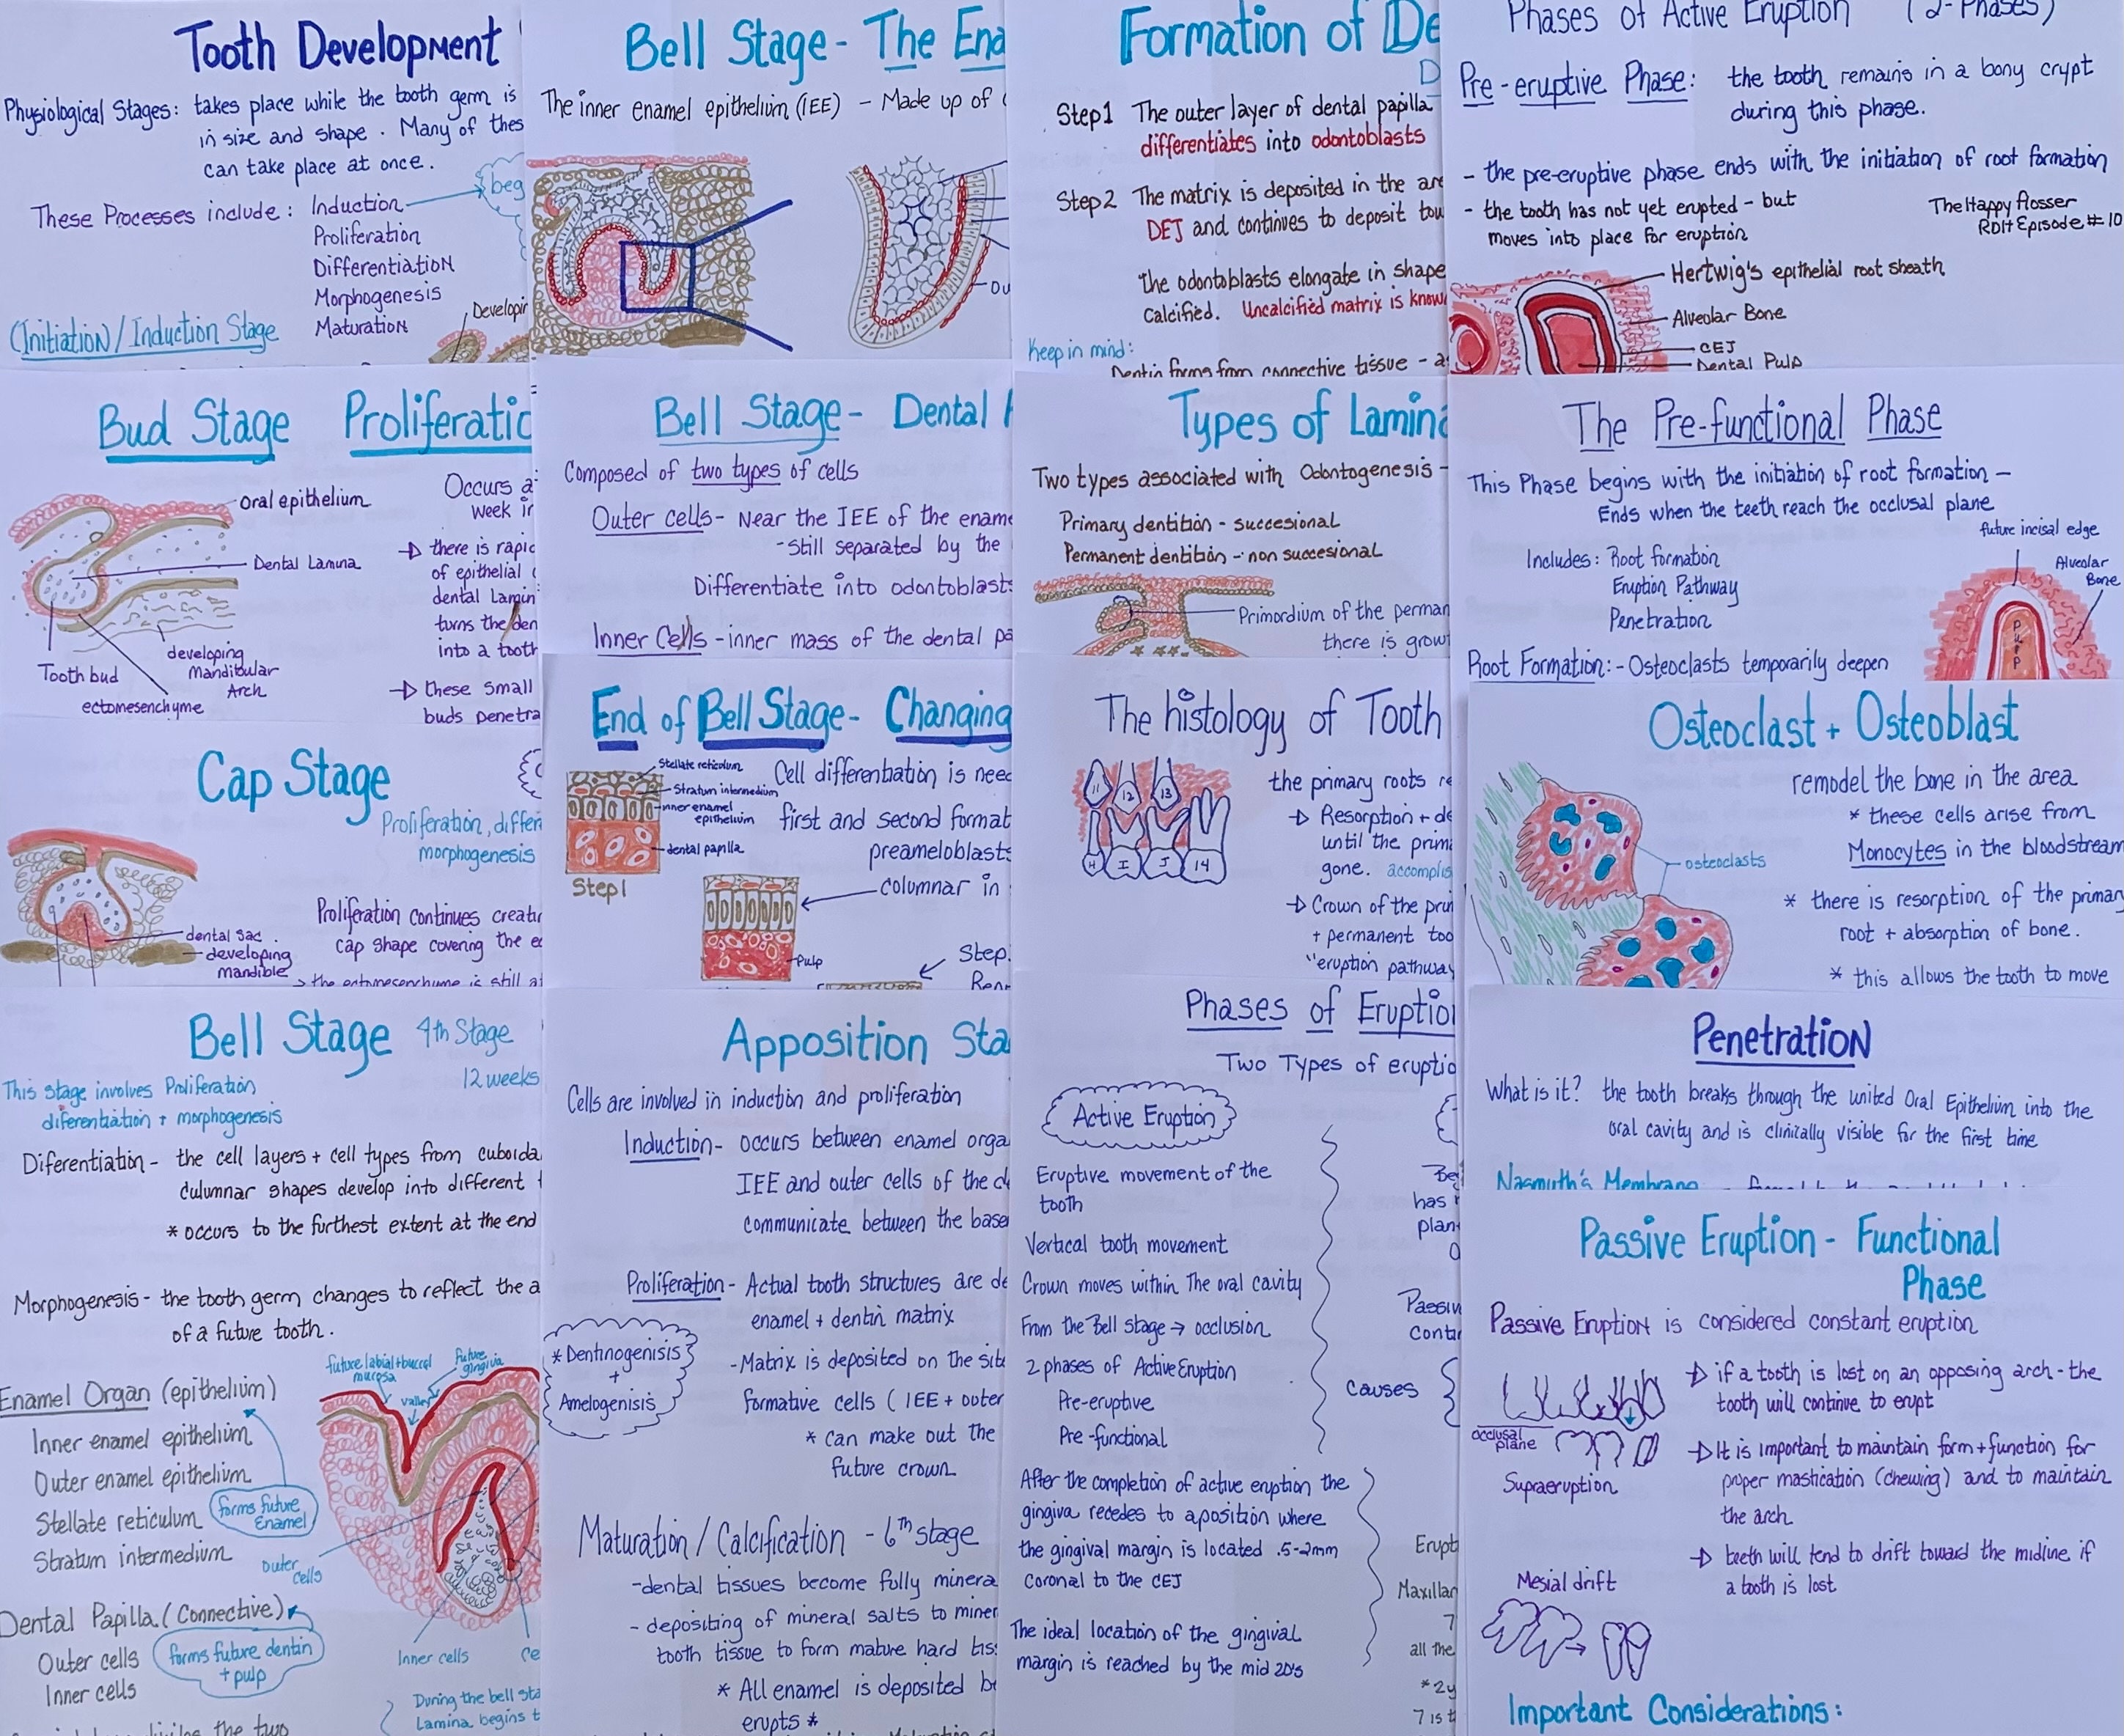 Tooth Development
Physiological Stages: takes place while the tooth germ is
in size and shape. Many of thes
can take place at once.
These Processes include: Induction
beg
Proliferation
Differentiation
Morphogenesis
Maturation
(Initiation)/Induction Stage
Developin
Bud Stage Proliferatio
oral epithelium
Dental Lamina
Tooth bud
developing
Mandibular
Arch
ectomesenchyme
Occurs a
week in
there is rapid
of epithelial
dental lamin
turns the den
into a tooth
these small
buds penetra
Cap Stage
Proliferation, differen
morphogenesis
Proliferation continues creatin
cap shape covering the ec
dental sac
developing
mandible
the ectomesenchyme is still at
Bell Stage 4th Stage
12 weeks
This stage involves Proliferation
diferentiation + morphogenesis
Diferentiation - the cell layers + cell types from cuboida
culumnar shapes develop into different t
* occurs to the furthest extent at the end
Morphogenesis - the tooth germ changes to reflect the a
of a future tooth.
future labial + buccal
mucosa
future
gingiva
valley
Enamel Organ (epithelium)
Inner enamel epithelium
Outer enamel epithelium
Stellate reticulum
Stratum intermedium
forms future
Enamel
outer
cells
Dental Papilla (Connective)
Outer cells
Inner cells
forms future dentin
+ pulp
Inner cells
Ce
During the bell sta
Lamina begins t
the two
Bell Stage - The Ena
The inner enamel epithelium (IEE) - Made up of
Ou
Bell Stage - Dental
Composed of two types of cells
Outer cells - Near the IEE of the ename
- still separated by the
Differentiate into odontoblasts
Inner Cells - inner mass of the dental pa
End of Bell Stage - Changing
Stellate reticulum
Stratum intermedium
inner enamel
epithelium
dental papilla
Step1
Cell differentiation is need
first and second format
preameloblasts
columnar in
Pulp
Step
Apposition Sta
Cells are involved in induction and proliferation
Induction - occurs between enamel orga
IEE and outer cells of the d
communicate between the base
Proliferation - Actual tooth structures are de
enamel + dentin matrix
* Dentinogenisis
+
Amelogenisis
- Matrix is deposited on the site
formative cells (IEE + outer
* can make out the
future crown
Maturation / Calcification - 6th stage
- dental tissues become fully minera
- depositing of mineral salts to miner
tooth tissue to form mature hard tis
* All enamel is deposited be
erupts *
Formation of De
D
Step1 The outer layer of dental papilla
differentiates into odontoblasts
Step2 The matrix is deposited in the are
DEJ and continues to deposit tow
The odontoblasts elongate in shape
Calcified. Uncalcified matrix is know
Keep in mind:
Dentin forms from connective tissue - a
Types of Lamina
Two types associated with Odontogenesis -
Primary dentition - succesional
Permanent dentition - non succesional
Primordium of the perman
there is growt
The histology of Tooth
11
12
13
H
I
J
14
the primary roots re
Resorption + de
until the prima
gone. accomplis
Crown of the prim
+ permanent too
"eruption pathway
Phases of Eruption
Two Types of eruptio
Active Eruption
Eruptive movement of the
tooth
Vertical tooth movement
Crown moves within The oral cavity
From the Bell stage → occlusion
2 phases of Active Eruption
Pre-eruptive
Pre-functional
Be
has
plan
Passiv
Contin
causes
After the completion of active eruption the
gingiva recedes to a position where
the gingival margin is located .5-2mm
Coronal to the CEJ
The ideal location of the gingival
margin is reached by the mid 20's
Erupt
Maxillar
7
all the
*2y
7 is t
Phases of Active Eruption (2-Phases)
Pre-eruptive Phase: the tooth remains in a bony crypt
during this phase.
- the pre-eruptive phase ends with the initiation of root formation
- the tooth has not yet erupted - but
moves into place for eruption
The Happy Flosser
RDH Episode #10
Hertwig's epithelial root sheath
Alveolar Bone
CEJ
Dental Pulp
The Pre-functional Phase
This Phase begins with the initiation of root formation -
Ends when the teeth reach the occlusal plane
future incisal edge
Includes: Root formation
Eruption Pathway
Penetration
Alveolar
Bone
Pulp
Root Formation: - Osteoclasts temporarily deepen
Osteoclast + Osteoblast
remodel the bone in the area
* these cells arise from
Monocytes in the bloodstream
osteoclasts
* there is resorption of the primary
root + absorption of bone.
* this allows the tooth to move
Penetration
What is it? the tooth breaks through the united Oral Epithelium into the
oral cavity and is clinically visible for the first time
Nasmyth's Membrane
Passive Eruption - Functional
Phase
Passive Eruption is considered constant eruption
if a tooth is lost on an opposing arch - the
tooth will continue to erupt
occlusal
plane
Supraeruption
It is important to maintain form + function for
proper mastication (chewing) and to maintain
the arch
teeth will tend to drift toward the midline if
a tooth is lost
Mesial drift
Important Considerations: